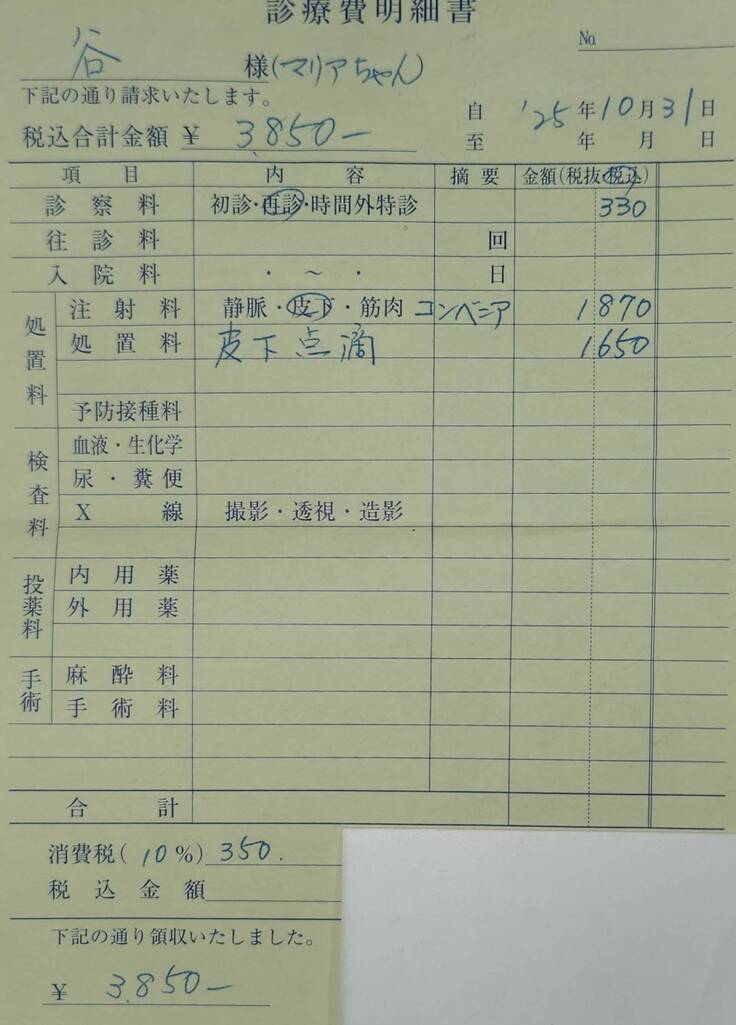 診療費明細書
No.
谷 様(マリアちゃん)
下記の通り請求いたします。
税込合計金額 ¥ 3,850-
自 '25年10月31日
至 年 月 日
項目 内容 摘要 金額(税抜・税込)
診察料 初診・再診・時間外特診 330
往診料 回
入院料 ・ ~ ・ 日
処置料
注射料 静脈・皮下・筋肉 コンベニア 1870
処置料 皮下点滴 1650
予防接種料
検査料
血液・生化学
尿・糞便
X線 撮影・透視・造影
投薬料
内用薬
外用薬
手術
麻酔料
手術料
合計
消費税(10%) 350.
税込金額
下記の通り領収いたしました。
¥ 3,850-